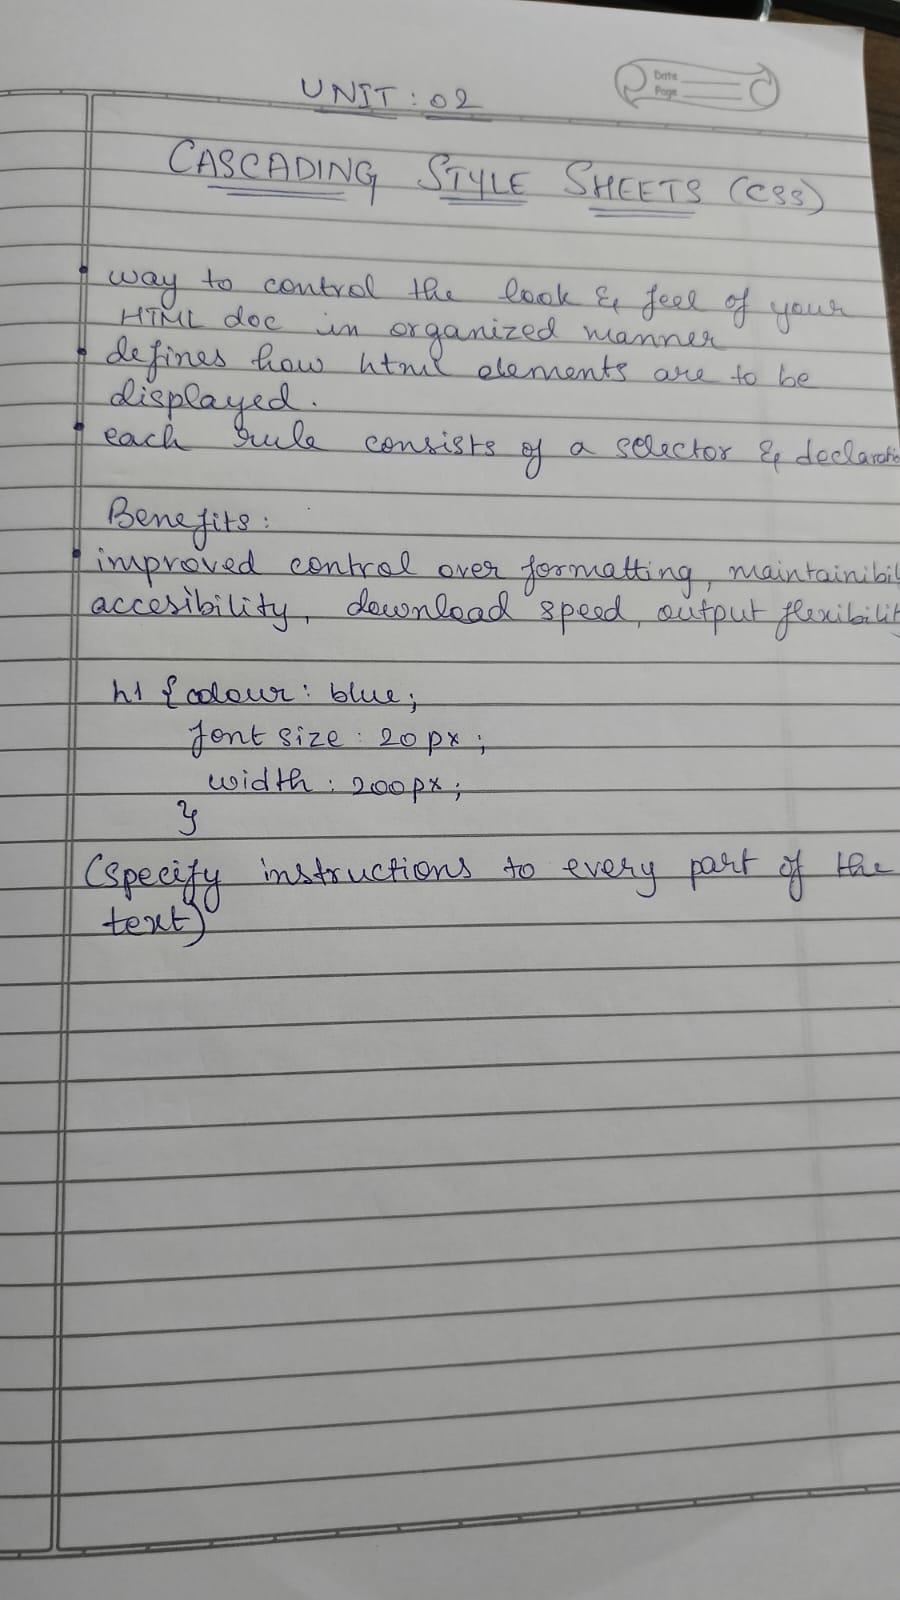 Date
Page
UNIT : 02
CASCADING STYLE SHEETS (CSS)
• way to control the look & feel of your
HTML doc in organized manner
• defines how html elements are to be
displayed.
• each rule consists of a selector & declaratio
Benefits :
• improved control over formatting, maintainibil
accesibility, download speed, output flexibilit
h1 { colour : blue;
font size : 20 px ;
width : 200px ;
}
(specify instructions to every part of the
text)